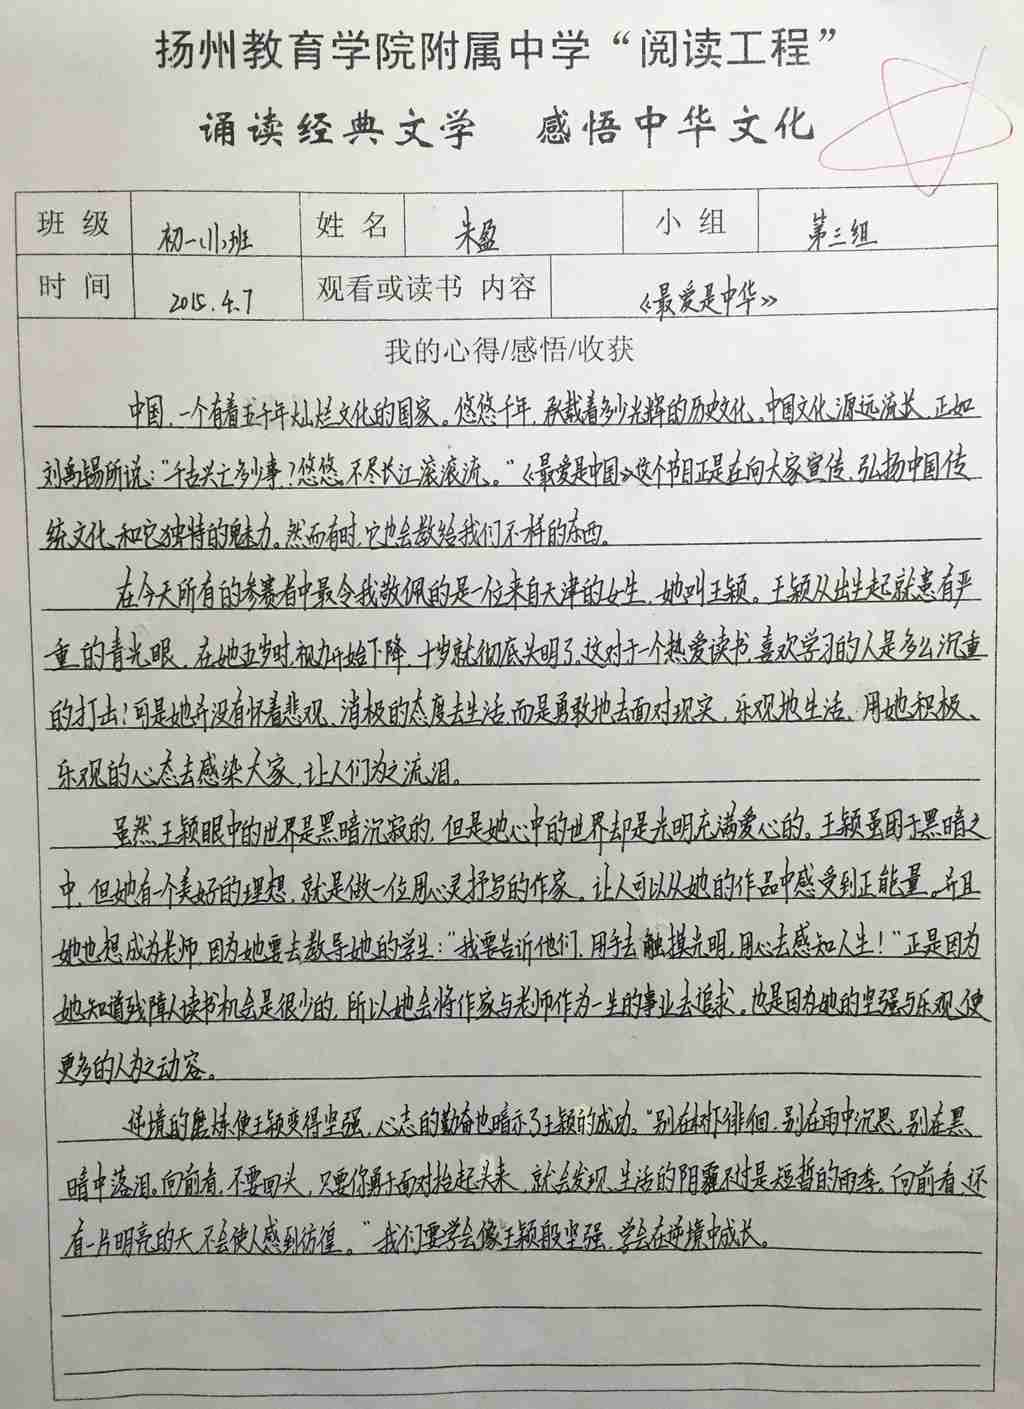 扬州教育学院附属中学“阅读工程”
诵读经典文学 感悟中华文化
班级 初一(1)班 姓名 朱盈 小组 第三组
时间 2015.4.7 观看或读书 内容 《最爱是中华》
我的心得/感悟/收获
中国,一个有着五千年灿烂文化的国家。悠悠千年,承载着多少光辉的历史文化。中国文化,源远流长,正如
刘禹锡所说:“千古兴亡多少事?悠悠。不尽长江滚滚流。”《最爱是中国》这个节目正是在向大家宣传、弘扬中国传
统文化,和它独特的魅力。然而有时,它也会教给我们不一样的东西。
在今天所有的参赛者中最令我敬佩的是一位来自天津的女生,她叫王颖。王颖从出生起就患有严
重的青光眼,在她五岁时,视力开始下降,十岁就彻底失明了。这对于一个热爱读书,喜欢学习的人是多么沉重
的打击!可是她并没有怀着悲观、消极的态度去生活,而是勇敢地去面对现实,乐观地生活,用她积极、
乐观的心态去感染大家,让人们为之流泪。
虽然,王颖眼中的世界是黑暗沉寂的,但是她心中的世界却是光明充满爱心的。王颖虽困于黑暗之
中,但她有一个美好的理想,就是做一位用心灵抒写的作家。让人可以从她的作品中感受到正能量。并且
她也想成为老师,因为她要去教导她的学生:“我要告诉他们,用手去触摸光明,用心去感知人生!”正是因为
她知道残障人读书机会是很少的,所以她会将作家与老师作为一生的事业去追求。也是因为她的坚强与乐观,使
更多的人为之动容。
逆境的磨炼使王颖变得坚强,心志的勤奋也暗示了王颖的成功。“别在树下徘徊,别在雨中沉思,别在黑
暗中落泪。向前看,不要回头,只要你勇于面对抬起头来,就会发现,生活的阴霾不过是短暂的雨季。向前看,还
有一片明亮的天,不会使人感到彷徨。”我们要学会像王颖般坚强,学会在逆境中成长。